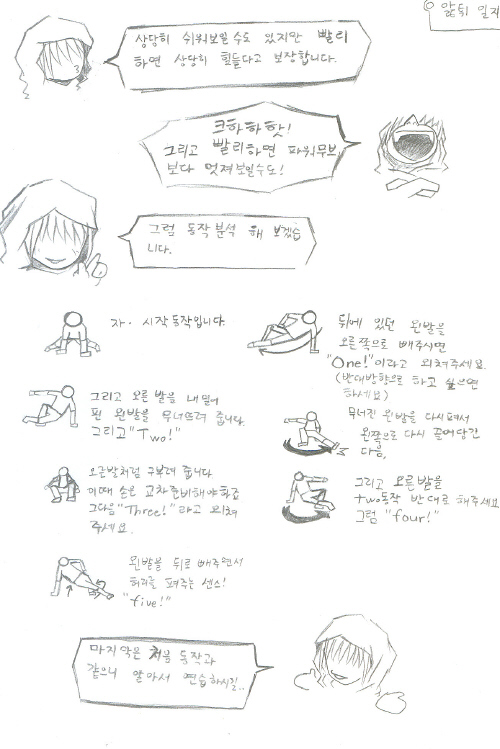 앞뒤 일지
상당히 쉬워보일 수도 있지만 빨리
하면 상당히 힘들다고 보장합니다.
크하하핫!
그리고 빨리하면 파워무브
보다 멋져보일수도!
그럼 동작분석 해 보겠습
니다.
자. 시작동작입니다
뒤에 있던 왼발을
오른쪽으로 빼주시면
"One!"이라고 외쳐주세요.
(반대방향으로 하고 싶으면
하세요)
그리고 오른발을 내밀어
핀 왼발을 무너뜨려 줍니다.
그리고 "Two!"
무너진 왼발을 다시펴서
왼쪽으로 다시 끌어당긴
다음,
오른발처럼 구부려 줍니다
이때 손은 교차준비해야하죠
그다음 "Three!"라고 외쳐
주세요.
그리고 오른발을
two동작 반대로 해주세요
그럼 "four!"
왼발을 뒤로 빼주면서
허리를 펴주는 센스!
"five!"
마지막은 처음 동작과
같으니 알아서 연습하시길..